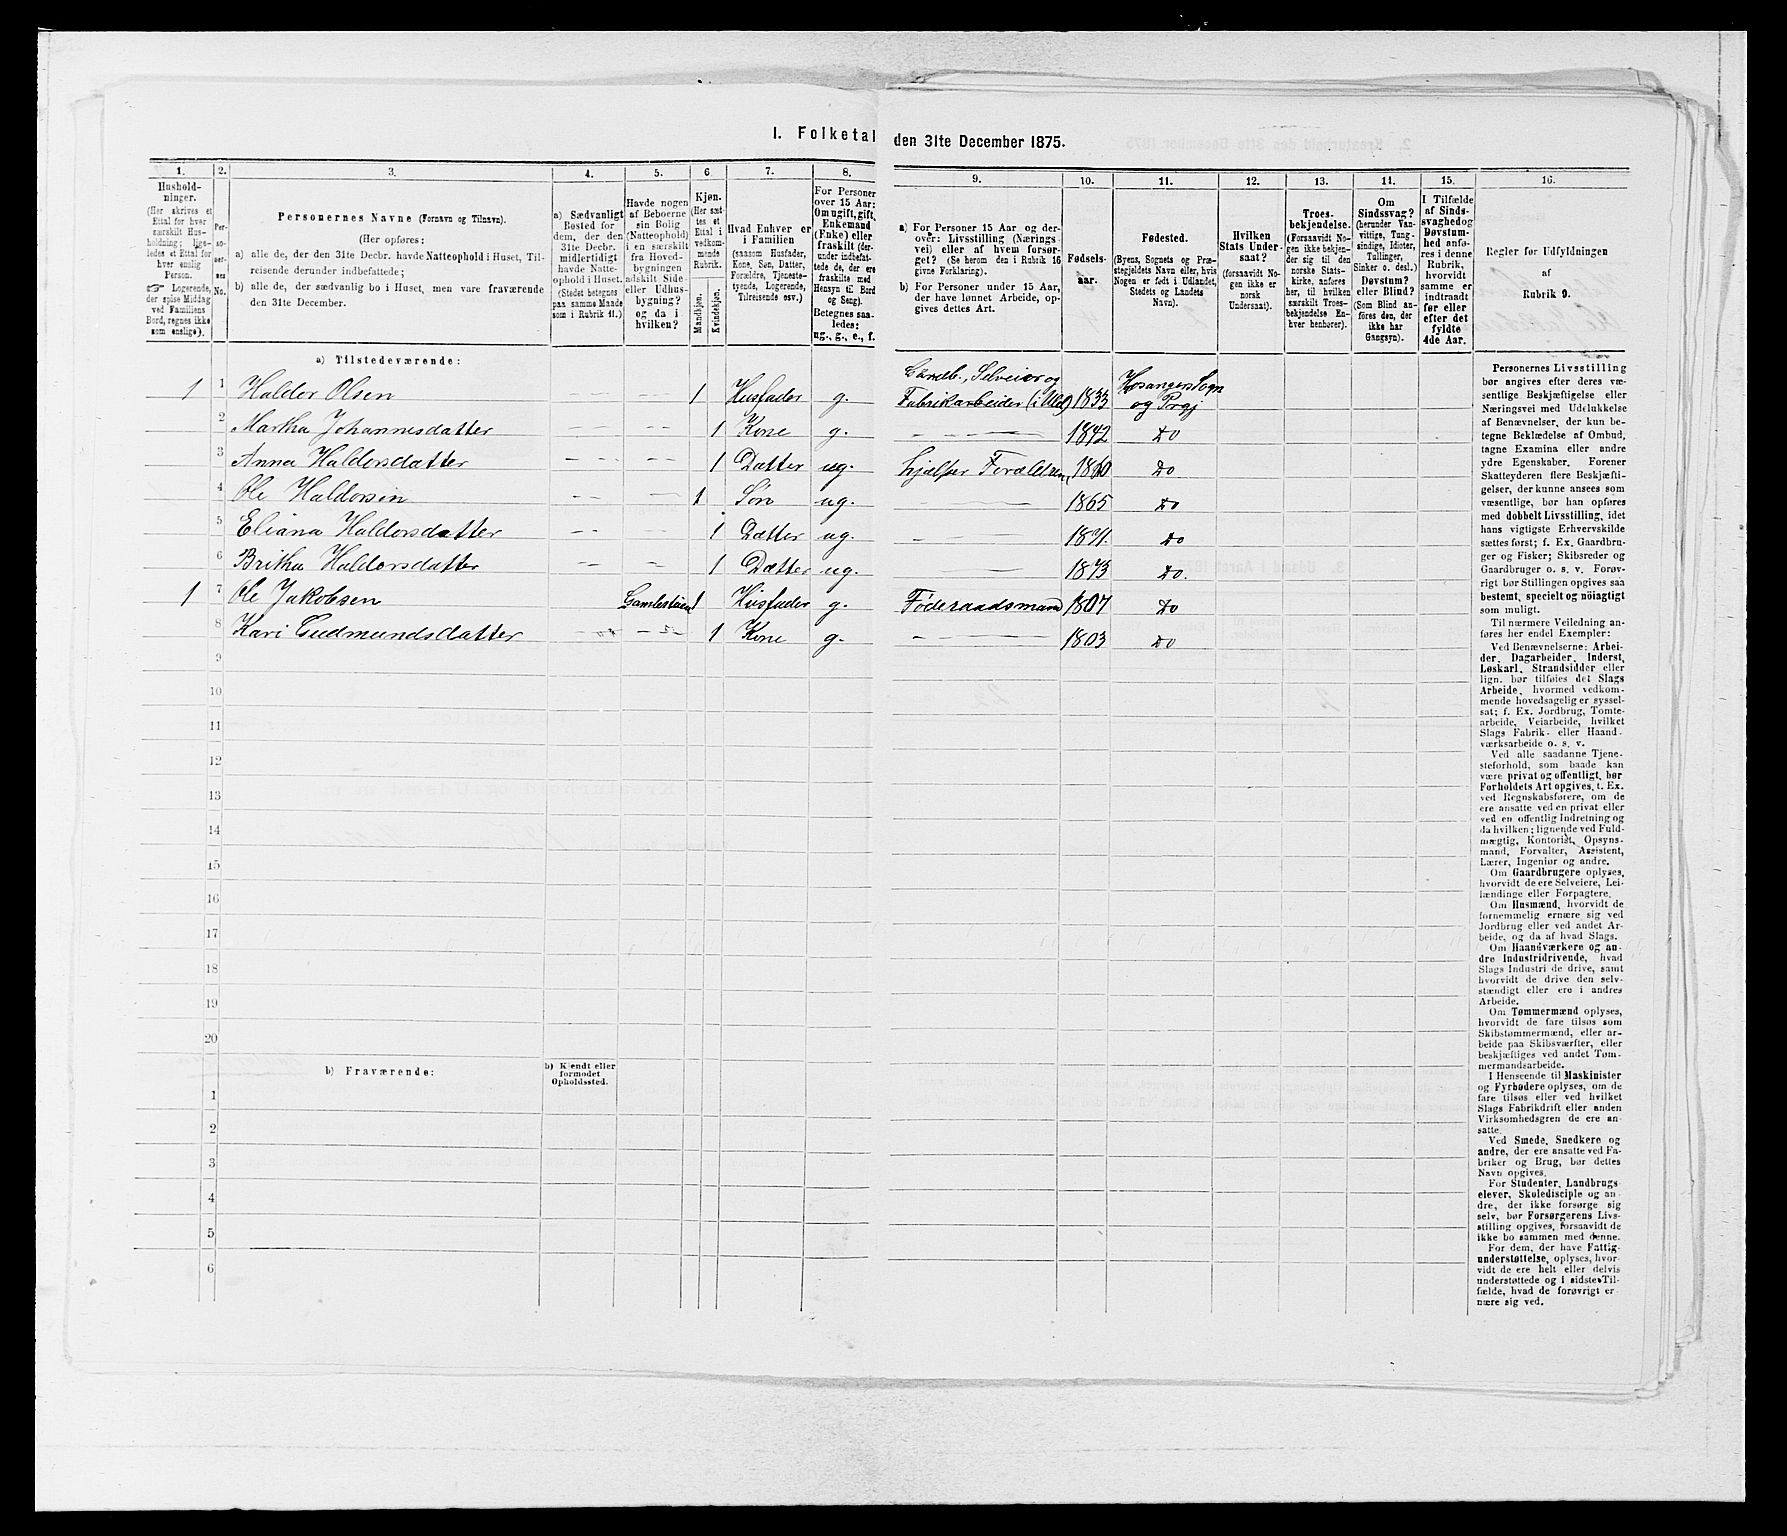 I. Folketal den 31te December 1875.
1. 2. 3. 4. 5. 6. 7. 8. 9. 10. 11. 12. 13. 14. 15. 16.
Hushold-
ninger.
(Her skrives et
Ettal for hver
særskilt Hus-
holdning; lige-
ledes et Ettal for
hver enslig
Person.
☞ Logerende,
der spise Middag
ved Familiens
Bord, regnes ikke
som enslige).
Per-
so-
ner-
nes
No.
Personernes Navne (Fornavn og Tilnavn).
(Her opføres:
a) alle de, der den 31te Decbr. havde Natteophold i Huset, Til-
reisende derunder indbefattede;
b) alle de, der sædvanlig bo i Huset, men vare fraværende
den 31te December.
a) Sædvanligt
Bosted for
dem, der den
31te Decbr.
midlertidigt
havde Natte-
ophold i Huset.
(Stedet betegnes
paa samme Maade
som i Rubrik 11.)
Havde nogen
af Beboerne
sin Bolig
(Natteophold)
i en særskilt
fra Hoved-
bygningen
adskilt Side-
eller Udhus-
bygning?
og da i
hvilken?
Kjøn.
(Her sæt-
tes et
Ettal i
vedkom-
mende
Rubrik.
Mandkjøn.
Kvindekjøn.
Hvad Enhver er
i Familien
(saasom Husfader,
Kone, Søn, Datter,
Forældre, Tjeneste-
tyende, Logerende,
Tilreisende osv.)
For Personer
over 15 Aar:
Om ugift, gift,
Enkemand
(Enke) eller
fraskilt (der-
under indbefat-
tede de, der ere
fraskilte med
Hensyn til Bord
og Seng).
Betegnes saa-
ledes:
ug., g., e., f.
a) For Personer 15 Aar og der-
over: Livsstilling (Nærings-
vei) eller af hvem forsør-
get? (Se herom den i Rubrik 16
givne Forklaring).
b) For Personer under 15 Aar,
der have lønnet Arbeide, op-
gives dettes Art.
Fødsels-
aar.
Fødested.
(Byens, Sognets og Præ-
stegjeldets Navn eller, hvis
Nogen er født i Udlandet,
Stedets og Landets
Navn).
Hvilken
Stats Under-
saat?
(forsaavidt No-
gen ikke er
norsk
Undersaat).
Troes-
bekjendelse.
(Forsaavidt No-
gen ikke bekjen-
der sig til den
norske Stats-
kirke, anføres
her, til hvilken
særskilt Troes-
bekjendelse En-
hver henhører).
Om
Sindssvag?
(herunder Van-
vittige, Tung-
sindige, Idioter,
Tullinger,
Sinker o. desl.)
Døvstum?
eller Blind?
(Som Blind an-
føres den, der
ikke har
Gangsyn).
I Tilfælde
af Sinds-
svaghed og
Døvstum-
hed anfø-
res i denne
Rubrik,
hvorvidt
samme er
indtraadt
før eller
efter det
fyldte
4de Aar.
Regler for Udfyldningen
af
Rubrik 9.
a) Tilstedeværende:
1 1 Haldor Olsen 1 Husfader g. Gardb., Selveier og Fabrikarbeider (i Uld) 1833 Hosangers Sogn og Prgj
2 Martha Johannesdatter 1 Kone g. 1842 Do
3 Anna Haldorsdatter 1 Datter ug. hjælper Forældrene 1860 Do
4 Ole Haldorsen 1 Søn ug. 1865 Do
5 Eliana Haldorsdatter 1 Datter ug. 1871. Do
6 Britha Haldorsdatter 1 Datter ug. 1873 Do.
1 7 Ole Jakobsen 1 Husfader g. Føderaadsmand 1807 Do
8 Kari Gudmundsdatter 1 Kone g. 1803 Do
9
10
11
12
13
14
15
16
17
18
19
20
b) Fraværende:
b) Kjendt eller
formodet
Opholdssted.
1
2
3
4
5
6
Personernes Livsstilling
bør angives efter deres væ-
sentlige Beskjæftigelse eller
Næringsvei med Udelukkelse
af Benævnelser, der kun be-
tegne Beklædelse af Ombud,
tagne Examina eller andre
ydre Egenskaber. Forener
Skatteyderen flere Beskjæfti-
gelser, der kunne ansees som
væsentlige, bør han opføres
med dobbelt Livsstilling, idet
hans vigtigste Erhvervskilde
sættes først; f. Ex. Gaardbru-
ger og Fisker; Skibsreder og
Gaardbruger o. s. v. Forøv-
rigt bør Stillingen opgives saa
bestemt, specielt og nöiagtigt
som muligt.
Til nærmere Veiledning an-
føres her endel Exempler:
Ved Benævnelserne: Arbei-
der, Dagarbeider, Inderst,
Løskarl, Strandsidder eller
lign. bør tilføies det Slags
Arbeide, hvormed vedkom-
mende hovedsagelig er syssel-
sat; f. Ex. Jordbrug, Tomte-
arbeide, Veiarbeide, hvilket
Slags Fabrik- eller Haand-
værksarbeide o. s. v.
Ved alle saadanne Tjene-
steforhold, som baade kan
være privat og offentligt, bør
Forholdets Art opgives, t. Ex.
ved Regnskabsførere, om de
ere ansatte ved en privat eller
ved en offentlig Indretning og
da hvilken; lignende ved Fuld-
mægtig, Kontorist, Opsyns-
mand, Forvalter, Assistent,
Lærer, Ingeniør og andre.
Om Gaardbrugere oplyses,
hvorvidt de ere Selveiere, Lei-
lændinge eller Forpagtere.
Om Husmænd, hvorvidt de
fornemmelig ernære sig ved
Jordbrug eller ved andet Ar-
beide, og da af hvad Slags.
Om Haandværkere og an-
dre Industridrivende, hvad
Slags Industri de drive, samt
hvorvidt de drive den selv-
stændigt eller ere i andres
Arbeide.
Om Tømmermænd oplyses,
hvorvidt de fare tilsøs som
Skibstømmermænd, eller ar-
beide paa Skibsværfter, eller
beskjæftiges ved andet Tøm-
mermandsarbeide.
I Henseende til Maskinister
og Fyrbødere oplyses, om de
fare tilsøs eller ved hvilket
Slags Fabrikdrift eller anden
Virksomhedsgren de ere an-
satte.
Ved Smede, Snedkere og
andre, der ere ansatte ved Fa-
briker og Brug, bør dettes
Navn opgives.
For Studenter, Landbrugs-
elever, Skoledisciple og an-
dre, der ikke forsørge sig
selv, bør Forsørgerens Livs-
stilling opgives, forsaavidt de
ikke bo sammen med denne.
For dem, der have Fattig-
understøttelse, oplyses, hvor-
vidt de ere helt eller delvis
understøttede og i sidste Til-
fælde, hvad de forøvrigt er-
nære sig ved.